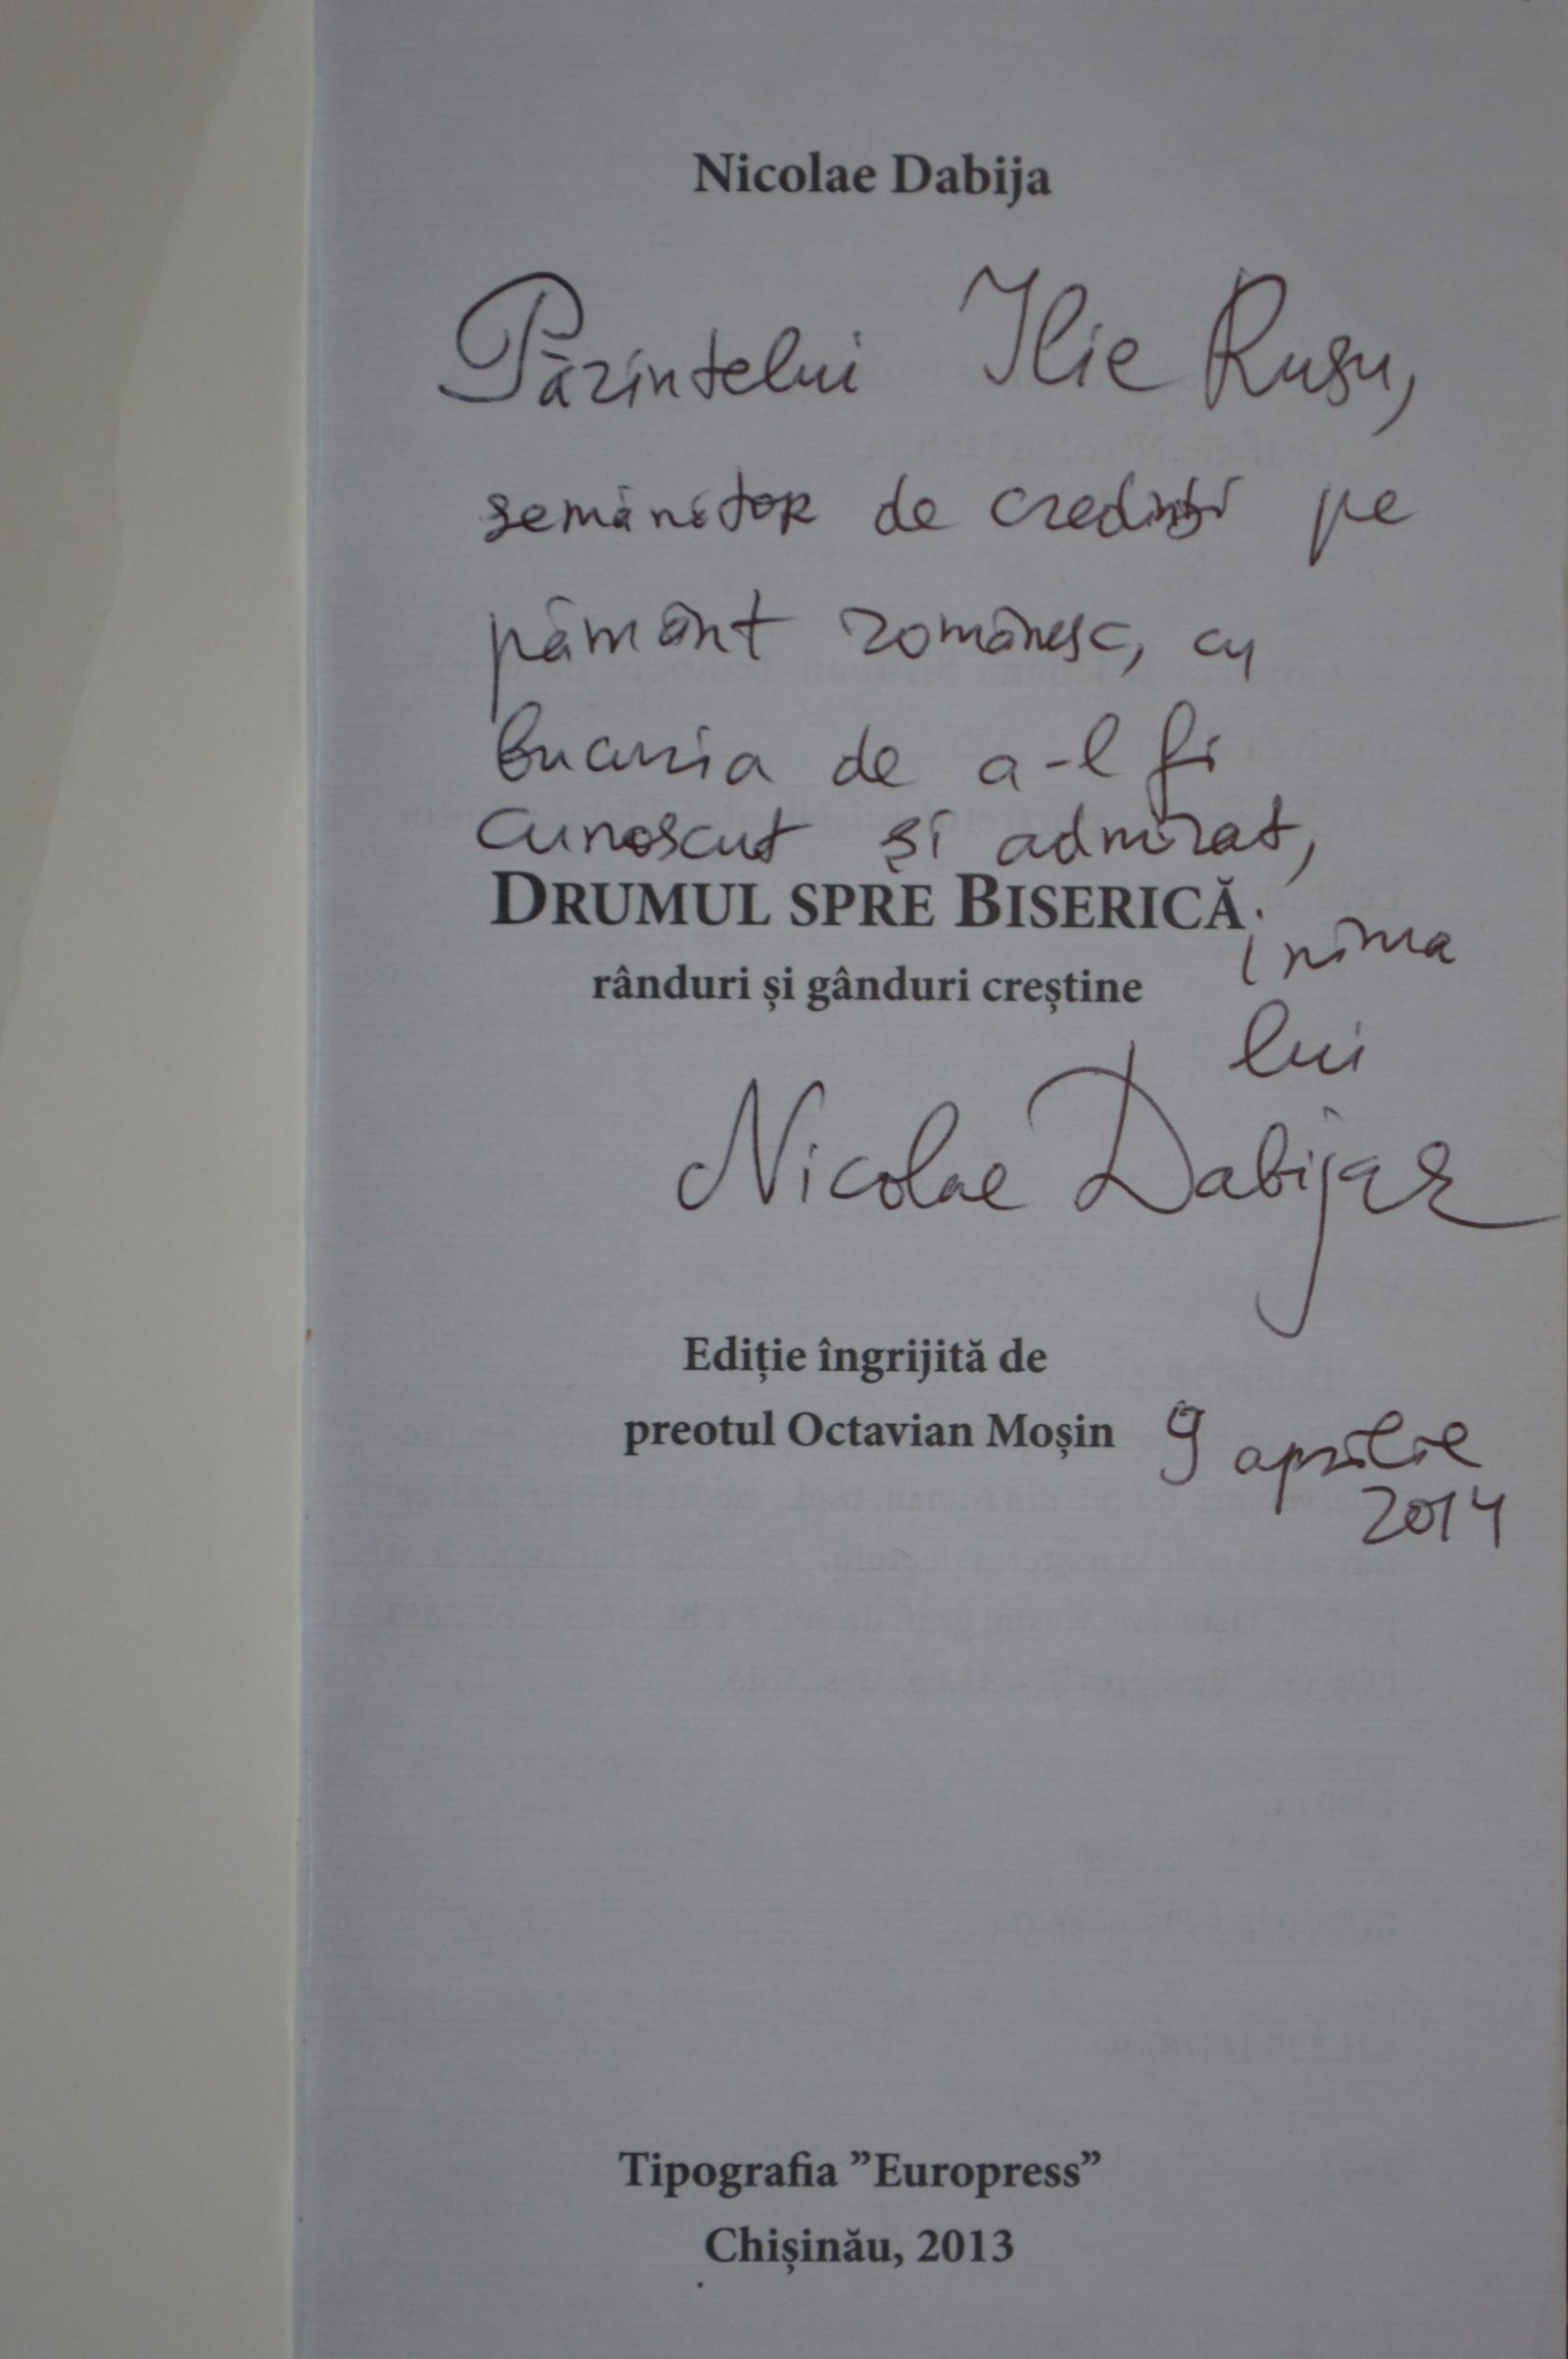 Nicolae Dabija
Părintelui Ilie Rusu,
semănător de credință pe
pământ românesc, cu
bucuria de a-l fi
cunoscut și admirat,
DRUMUL SPRE BISERICĂ
inima
rânduri și gânduri creștine
lui
Nicolae Dabija
Ediție îngrijită de
preotul Octavian Moșin
9 aprilie
2014
Tipografia ”Europress”
Chișinău, 2013